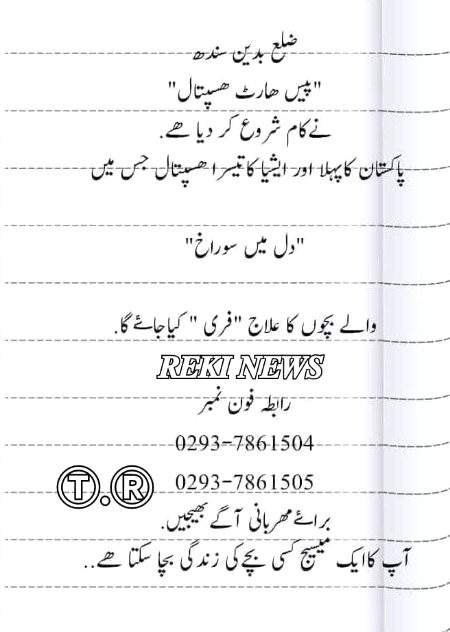 ضلع بدین سندھ
"پیس ھارٹ ھسپتال"
نےکام شروع کر دیا ھے.
پاکستان کاپہلا اور ایشیا کاتیسرا ھسپتال جس میں
"دل میں سوراخ"
والے بچوں کا علاج "فری " کیاجائے گا.
REKI NEWS
رابطہ فون نمبر
0293-7861504
0293-7861505
T.R
برائےمھربانی آگے بھیجیں.
آپ کاایک میسیج کسی بچےکی زندگی بچا سکتا ھے..